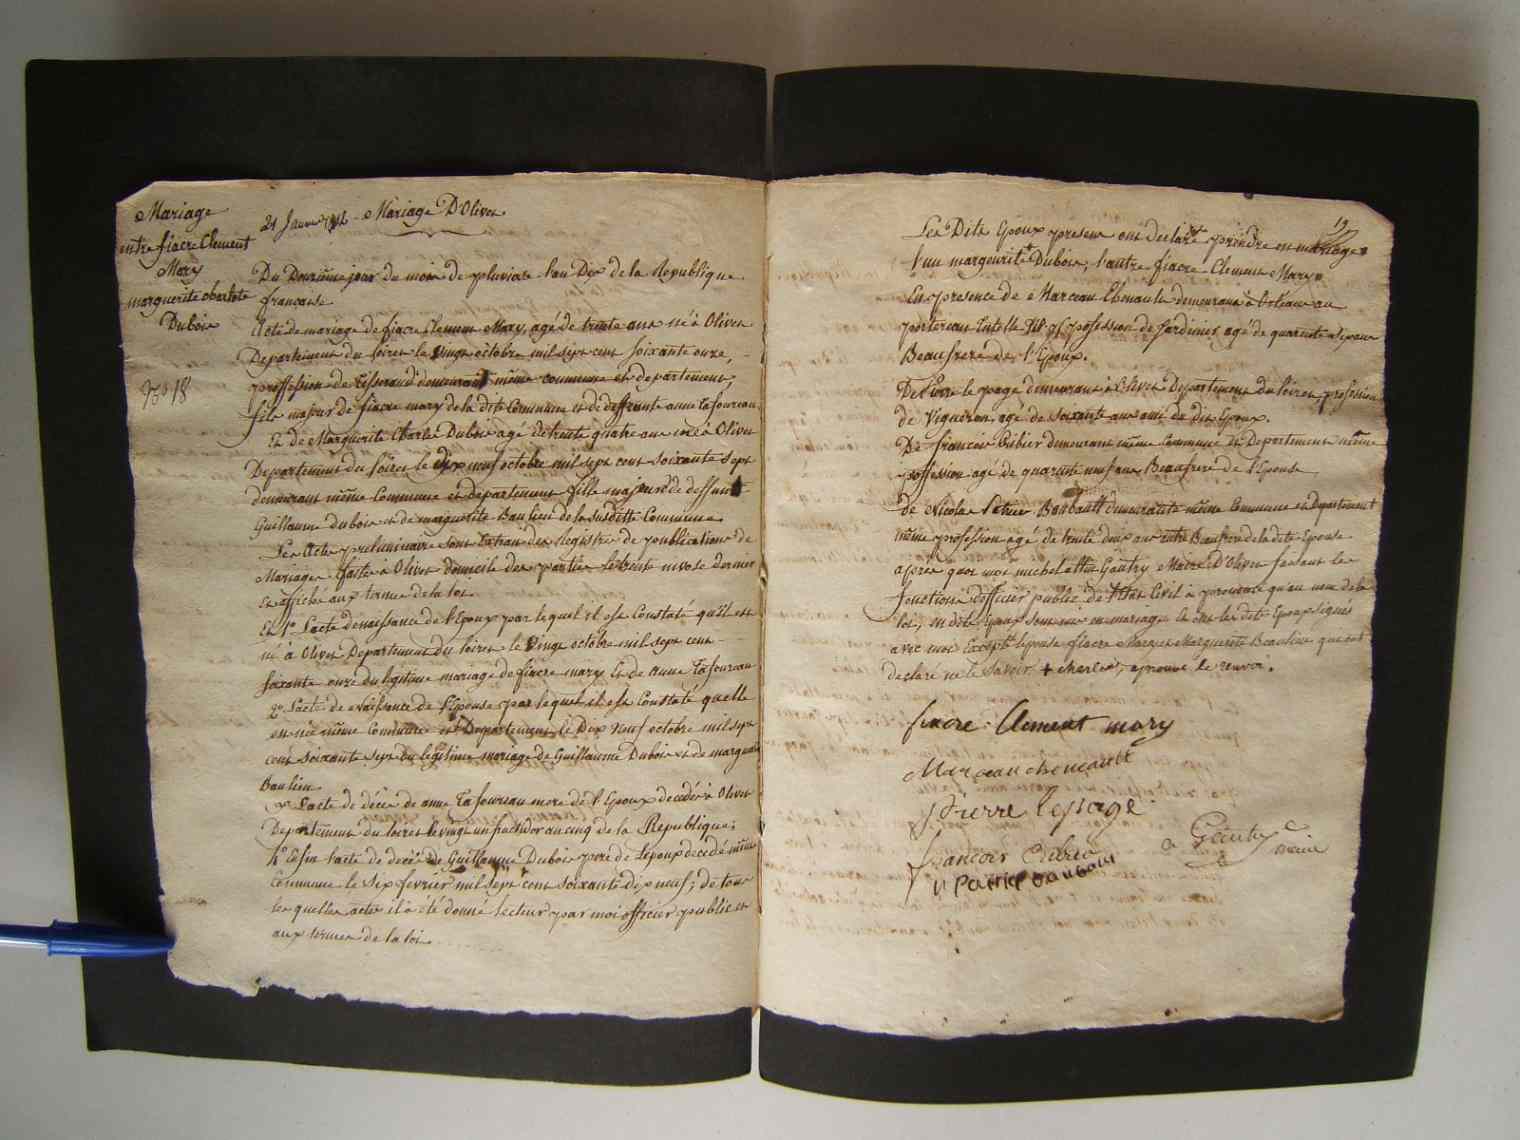 Mariage
entre fiacre Clement
Mary
marguerite charlote
Dubois
N.o 18
21 Janvier Mariage D'Olivet
Du Douzième jour du mois de pluviose l'an Dix de la Republique
francaise
Acte de mariage de fiacre Clement Mary, agé de trente ans né à Olivet
Departement du Loiret le vingt octobre mil sept cent soixante onze,
proffession de Tisserand demeurant même commune et departement,
fils majeur de fiacre mary de la dite Commune et de deffunte anne Lafourcau
Et de Marguerite Charle Dubois agé de trente quatre ans née à Olivet
Departement du Loiret le Dix neuf octobre mil sept cent soixante sept
demeurant même Commune et departement fille majeure de deffunt
Guillaume dubois et de marguerite Baulieu de la susditte Commune
Les Actes preliminaire sont Extrait des Registre de publications de
Mariages faite à Olivet domicile des parties le trente nivose dernier
et affiché aux termes de la loi
Et 1o L'acte denaissance de l'Epoux par lequel il est Constaté qu'il est
né à Olivet Departement du Loiret le vingt octobre mil sept cent
soixante onze du légitime mariage de fiacre mary Et de Anne Lafourcau
2o L'acte de Naissance de l'Epouse par lequel il est Constaté quelle
est née même Commune et Departement le Dix Neuf octobre mil sept
cent soixante sept du légitime mariage de Guillaume Dubois et de margue
Baulieu
L'acte de décès de anne Lafourcau mere de l'Epoux decedé à Olivet
Departement du loiret le vingt un fructidor an cinq de la Republique;
4o Enfin l'acte de decès de Guillaume Dubois pere de Lepouse decedé même
Commune le six fevrier mil sept cent soixante dix neuf; de tous
les quelles actes il a été donné lecture par moi officier public et
aux termes de la loi
19
Les Dits Epoux present ont declaré prendre en mariage
l'un margeurite Dubois, l'autre fiacre Clement Mary
En presence de Marceau Chenault demeurant à orléans au
portereau profession de Jardinier agé de quarente sept ans
Beaufrere de l'Epoux.
De Pierre le page demeurant à Olivet Departement du loiret profession
de Vigneron agé de soixante ans ami du dit Epoux.
De francois Cribier demeurant même Commune et Departement même
proffession agé de quarente neuf ans Beaufrere de l'Epouse
de Nicolas Patrice Barbault demeurant même Commune et Departement
même profession agé de trente deux ans Beaufrere de la dite Epouse
après quoi moi michel Gautry Maire D'Olivet faisant les
fonctions d'officier public de l'Etat Civil à prononcé qu'au nom de la
loi, les dits Epoux sont unis en mariage et ont les dits Epoux signés
avec moi Excepté lepouse fiacre Mary et Marguerite Beaulieu qui ont
declaré ne le savoir + charles, aprouvé le renvoi.
fiacre Clement mary
Marceau cheneault
pierre lepage
francois Cribier
N Patrice Barbault
Gautry
maire